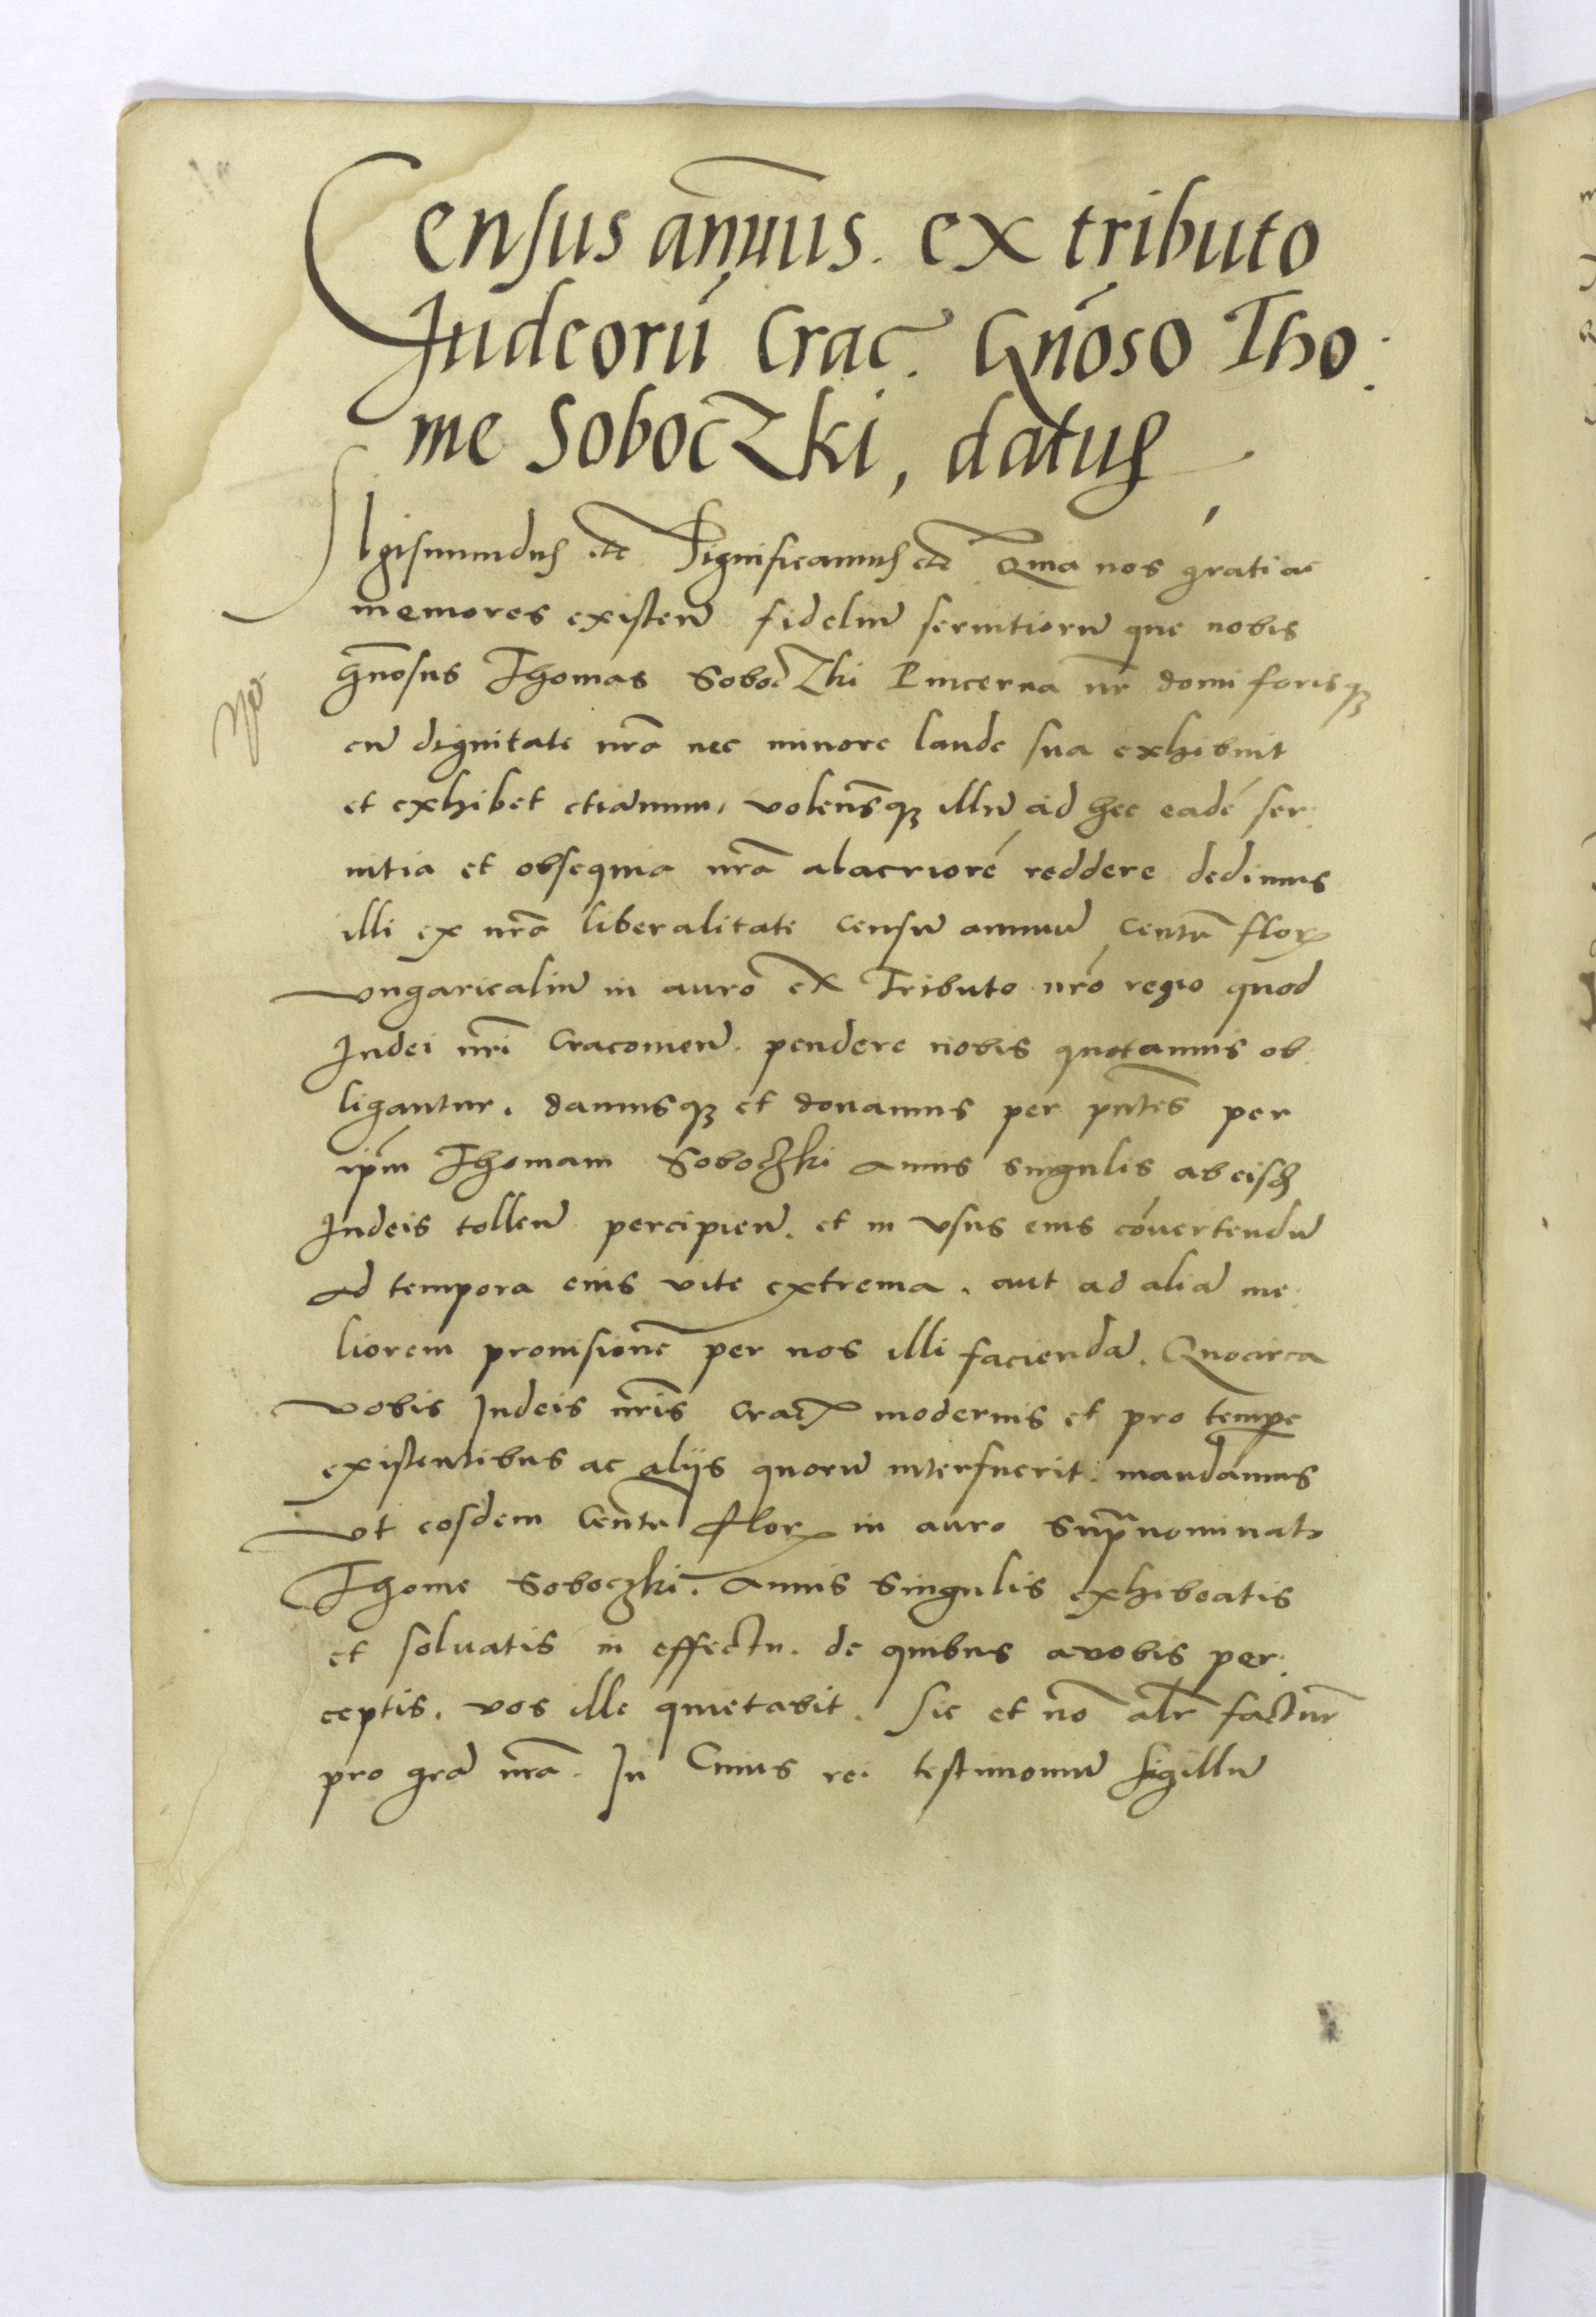 Census an̄uus. ex tributo
Judeorū Crac̄. Gn̄oso Tho:
me Soboczki, datus
Sigismundus etc Significamus etc Quia nos grati ac
memores existen̄ fideliū seruitiorū que nobis
Gn̄osus Thomas Soboczki Pincerna nr̄ domi forisqȝ
cū dignitate nr̄a nec minore laude sua exhibuit
et exhibet etiamnum, volen̄sqȝ illū ad hec eadē ser:
uitia et obsequia nr̄a alacriorē reddere dedimus
illi ex nr̄a liberalitate censū annuū Centū florꝝ
vngaricaliū in auro ex Tributo nr̄o regio quod
Judei nr̄i Cracouien̄. pendere nobis quotannis ob:
ligantur. damusqȝ et donamus per pn̄tes per
ip̄m Thomam Soboczki annis singulis ab eisd̄
Judeis tollen̄ percipien̄. et in vsus eius cōuertendū
Ad tempora eius vite extrema. aut ad aliā me:
liorem prouisionē per nos illi faciendā. Quocirca
vobis Judeis nr̄is Crac̄ modernis et pro tempe
existentibus ac alijs quorū interfuerit. mandamus
vt eosdem Centū florꝝ in auro Sup̄nominato
Thome Soboczki. Annis Singulis exhibeatis
et soluatis in effectu. de quibus a vobis per:
ceptis. vos ille quietabit. Sic et nō alr̄ facturi
pro grā nr̄a. In Cuius rei testimoniū sigillū